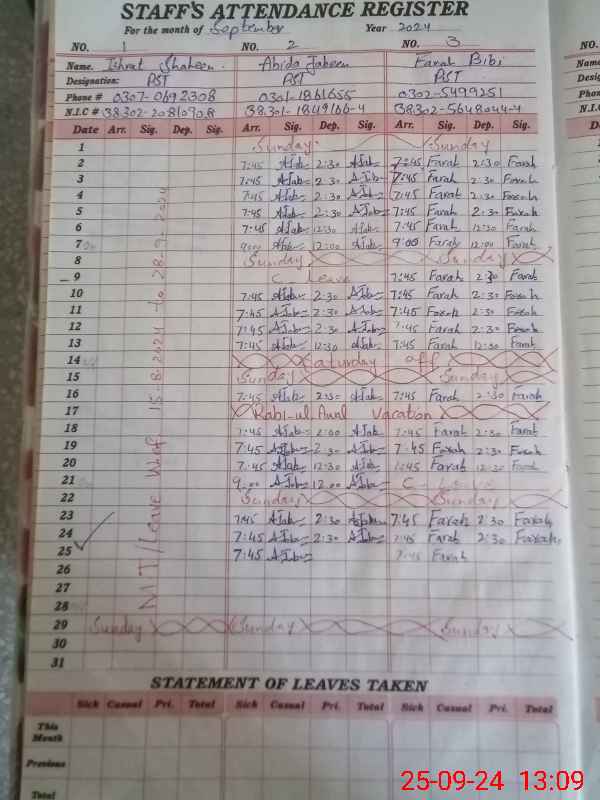 STAFF'S ATTENDANCE REGISTER
For the month of September Year 2024
NO. 1 NO. 2 NO. 3 NO.
Name. Ishrat Shaheen. Abida Jabeen Farah Bibi
Designation: PST PST PST
Phone # 0307-0692308 0301-1861655 0302-5499251
N.I.C # 38302-2081090.8 38301-1849166-4 38302-5648044-4
Date Arr. Sig. Dep. Sig. Arr. Sig. Dep. Sig. Arr. Sig. Dep. Sig.
1 Sunday Sunday
2 7:45 2:30 7:45 Farah 2:30 Farah
3 7:45 2:30 7:45 Farah 2:30 Farah
4 7:45 2:30 7:45 Farah 2:30 Farah
5 7:45 2:30 7:45 Farah 2:30 Farah
6 7:45 12:30 7:45 Farah 12:30 Farah
7 9:00 12:00 9:00 Farah 12:00 Farah
8 Sunday Sunday
9 C Leave 7:45 Farah 2:30 Farah
10 7:45 2:30 7:45 Farah 2:30 Farah
11 7:45 2:30 7:45 Farah 2:30 Farah
12 7:45 2:30 7:45 Farah 2:30 Farah
13 7:45 12:30 7:45 Farah 12:30 Farah
14 Saturday off
15 Sunday Sunday
16 7:45 2:30 7:45 Farah 2:30 Farah
17 Rabi-ul Awal Vacation
18 7:45 2:00 7:45 Farah 2:30 Farah
19 7:45 2:30 7:45 Farah 2:30 Farah
20 7:45 12:30 7:45 Farah 12:30 Farah
21 9:00 12:00 C-Leave
22 Sunday Sunday
23 7:45 2:30 7:45 Farah 2:30 Farah
24 7:45 2:30 7:45 Farah 2:30 Farah
25 7:45 7:45 Farah
26
27
28
29 Sunday Sunday Sunday
30
31
STATEMENT OF LEAVES TAKEN
Sick Casual Pri. Total Sick Casual Pri. Total Sick Casual Pri. Total
This Month
Previous
Total
25-09-24 13:09